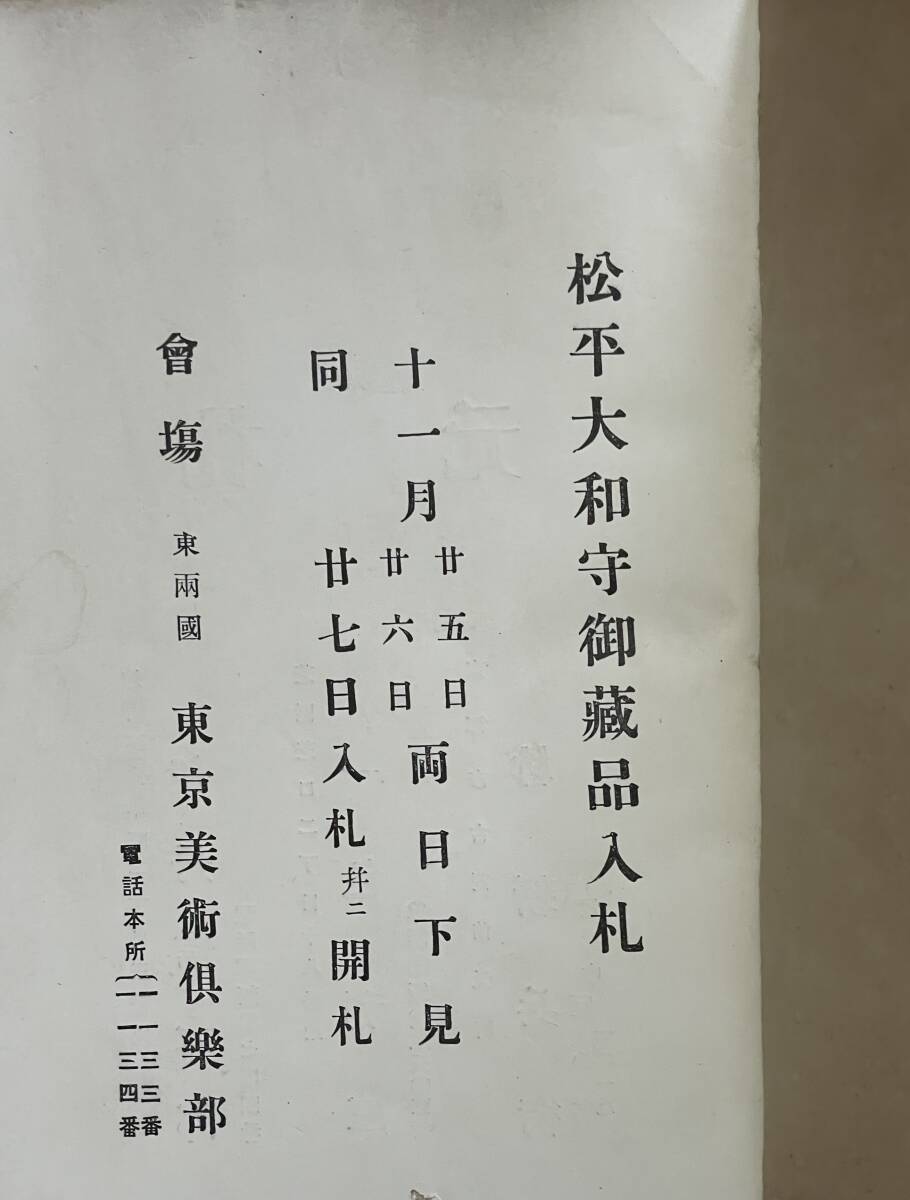 松平大和守御藏品入札
十一月廿五日廿六日両日下見
同廿七日入札幷ニ開札
會塲 東兩國 東京美術倶樂部
電話本所{一一三三番 一一三四番